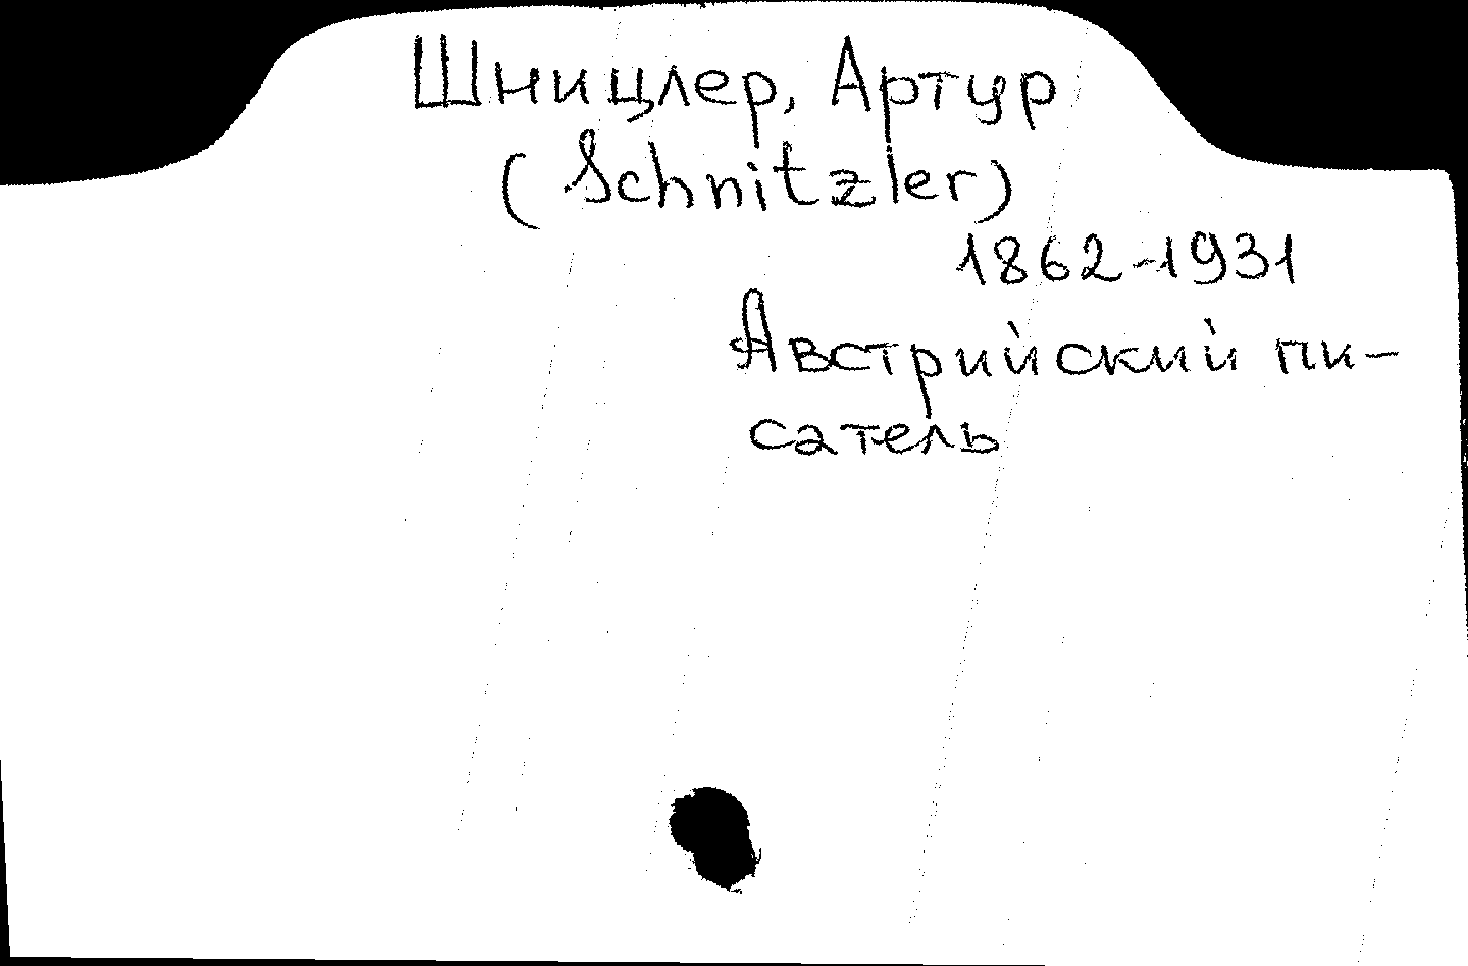 Шницлер, Артур
(Schnitzler)
1862-1931
Австрийский пи-
сатель